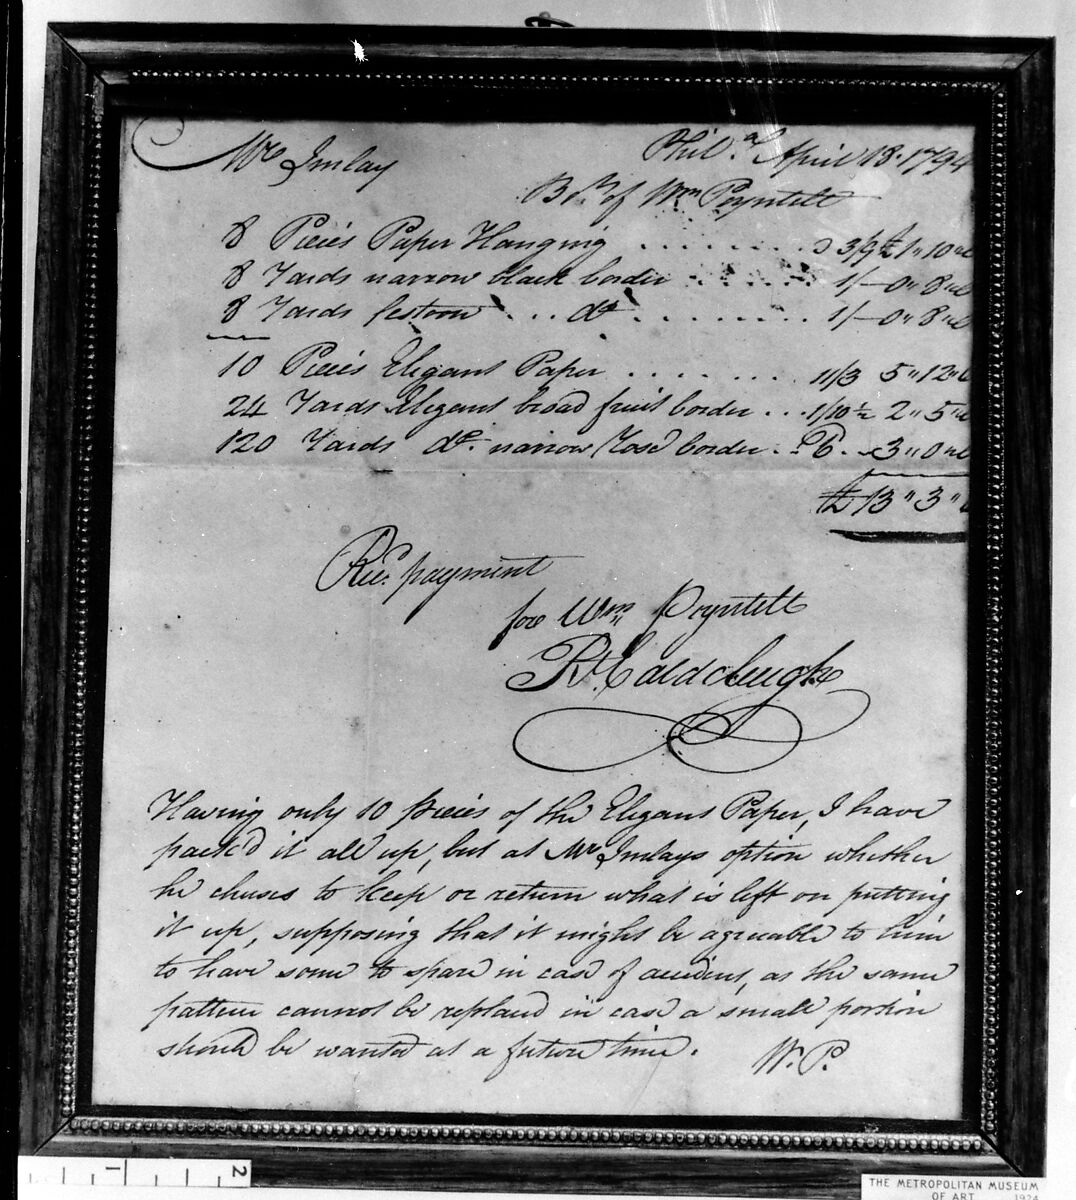 Mr Imlay
Phila. April 18. 1794
Bot of Wm Poyntell
8 Pieces Paper Hanging . . . . . . . . 3/9 £ 1 " 10 "
8 Yards narrow black border . . . . . . 1/— 0 " 8 "
8 Yards festoon . . . do . . . . . . . . 1/— 0 " 8 "
10 Pieces Elegant Paper . . . . . . . 11/3 5 " 12 "
24 Yards Elegant broad fruit border . . . 1/10 ½ 2 " 5 "
120 Yards do. narrow rose border . 6 . . 3 " 0 "
£ 13 " 3 "
Rec. payment
for Wm Poyntell
Rt. Caldcleugh
Having only 10 pieces of the Elegant Paper, I have
pack'd it all up, but at Mr Imlays option whether
he chuses to keep or return what is left on putting
it up, supposing that it might be agreeable to him
to have some to spare in case of accident, as the same
pattern cannot be replaced in case a small portion
should be wanted at a future time.
W. P.
1 2
THE METROPOLITAN MUSEUM
OF ART 1924